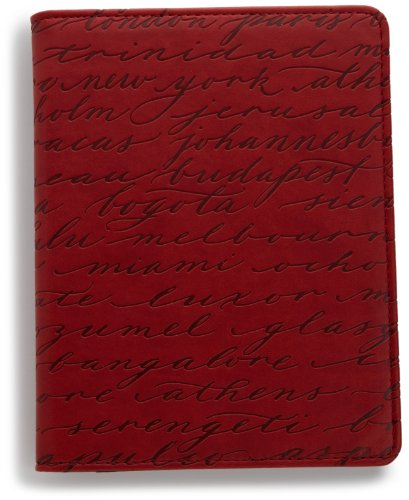 london paris
trinidad
new york
holm jerusal
racas johannesbo
eau budapest
a bogota sien
lulu melbourn
miami ocho
ate luxor m
zumel glasg
bangalore c
ore athens e
serengeti b
apulco aspe